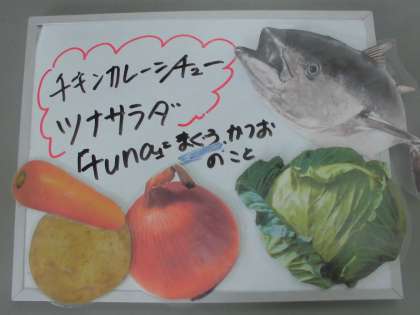 チキンカレーシチュー
ツナサラダ
「tuna」=まぐろ、かつお
のこと